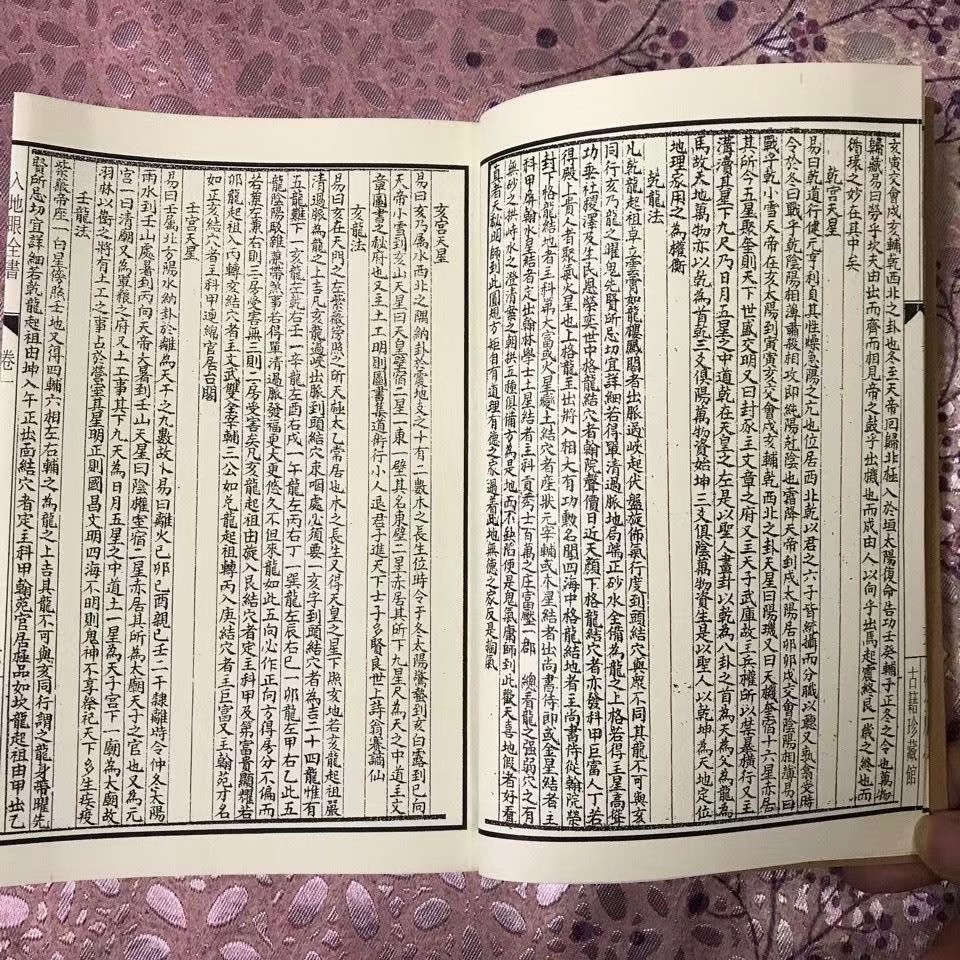 亥寅交會戌亥輔乾西北之卦也冬至天帝回歸北極入於垣太陽復命告功壬癸輔子正冬之令也萬物
歸藏易曰勞乎坎夫由出而齊而相見帝之鼓乎出機也而成由人以向乎出馬起震終艮一歲之終也而
循環之妙在其中矣
乾宮天星
易曰乾道行健元亨利貞其性燥急陽之元也位居西北乾以君之六子皆統攝而分職以聽又氣翕交時
令於冬曰戰乎乾陰陽相薄肅殺相攻即純陽剋陰也霜降天帝到戌太陽居卯卯戌交會陰陽相薄易曰
戰乎乾小雪天帝在亥太陽到寅寅亥交會戌亥輔乾西北之卦天星曰陽璣又曰天機奎宿十六星亦居
其所令五星聚奎則天下世盛交明又曰封豕主文章之府又曰天子武庫故主兵權所以禁暴橫行又主
溝瀆其星下九尺乃日月五星之中道乾在天皇之左是以聖人畫卦以乾為八卦之首為天為父為龍為
馬故夫地萬物亦以乾為首乾三爻俱陽萬物資始坤三爻俱陰萬物資生是以聖人以乾坤為天地定位
地理家用之為權衡
乾龍法
凡乾龍起祖卓立雲霄如龍樓鳳閣者出脈過峽起伏盤旋佈氣行度到頭結穴與眾不同其龍不可與亥
同行亥乃龍之曜鬼先賢所忌切宜詳細若得單清過脈地局端正砂水全備為龍之上格若得主星高聳
功垂社稷澤及生民恩榮奕世中格龍結穴者翰院聲價日近天顏下格龍結穴者亦發科甲巨富人丁若
得殿上貴人者聚氣火星也上格龍主出將入相大有功勳名聞四海中格龍結地者主尚書侍從翰院榮
封下格龍結地者主科第大富或火星嶽土結穴者產狀元宰輔或木星結者出尚書侍即或金星結者主
科甲屏翰水星結者定出翰林學士土星結者主科貢秀士百萬之庄富壓一郡 總看龍之強弱穴之有
無砂之拱峙水之澄清案之朝拱五種俱備方為是地而不缺陷便是鬼氣庸師到此歡天喜地假者好看
真者天秘明師到此圓規方矩自有道理有德之家過着此地無德之家反是拋氣
古籍珍藏館
亥宮天星
易曰亥乃屬水西北之隅納卦於震地支之十有二數木之長生位時令于冬太陽驚蟄到亥白露到巳向
天帝小雪到亥山天星曰天皇壁宿二星一東一壁其名東壁二星亦居其所下九星尺為天之中道主文
章圖書之秘府也又主土工明則圖書集道術行小人退君子進天下士子多賢良世上詩翁養謫仙
亥龍法
易曰亥在天門之左紫薇旁照之所天極太乙常居也木之長生又得天皇之星下照亥地若亥龍起祖嚴
清過脈為龍之上吉凡亥龍過峽出脈到頭結穴束咽處必須要一亥字到頭結穴者為吉二十四龍惟有
五龍難下一亥龍左乾右壬一辛龍左酉右戌一午龍左丙右丁一巽龍左辰右巳一卯龍左甲右乙此五
龍陰陽駁雜藏帶煞事若得單清過脈發福更大更悠久不但來龍如此五向必作正向方得房分不偏而
若棄左兼右則三房受害無三則一二房受害矣凡亥龍起祖由旋入艮結穴者定主科甲及第富貴顯耀若
卯龍起祖入內轉亥結穴者主文武雙全宰輔三公如兌龍起祖轉丙入庚結穴者主巨富又主翰苑才名
如正亥結穴者主科甲連綿官居台閣
壬宮天星
易曰壬屬北方陽水納卦於離為天干之九數故卜易曰離火己卯己酉親己壬二千隸離時令仲冬太陽
雨水到壬山處暑到丙向天帝大暑到壬山天星曰陰權室宿二星亦居其所為太廟天子之宮也又為元
宮一曰清廟又為軍糧之府又土工事其下九尺為日月五星之中道土一星為天子宮下一廟為太廟故
羽林以衛之將有土工之事占於營室其星明正則國昌文明四海不明則鬼神不享祭祀天下多生疫疫
壬龍法
紫薇帝座一白星傍照壬地又得四輔六相左右輔之為龍之上吉具龍不可與亥同行謂之龍身帶曜先
賢所忌切宜詳細若乾龍起祖由坤入午正出南結穴者定主科甲翰苑官居極品如坎龍起祖由甲出乙
入地眼全書
卷